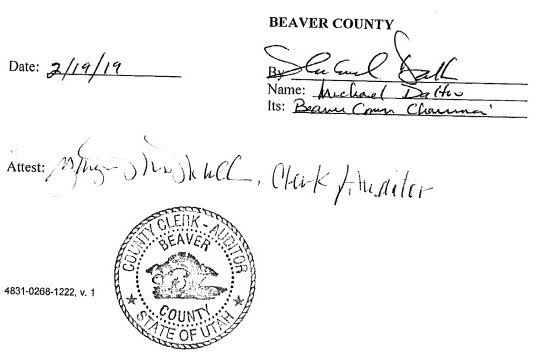 BEAVER COUNTY
Date: 2/19/19
By
Name: Michael Dalton
Its: Beaver Comm Chairman
Attest: , Clerk / Auditor
COUNTY CLERK - AUDITOR
BEAVER
COUNTY
STATE OF UTAH
4831-0268-1222, v. 1